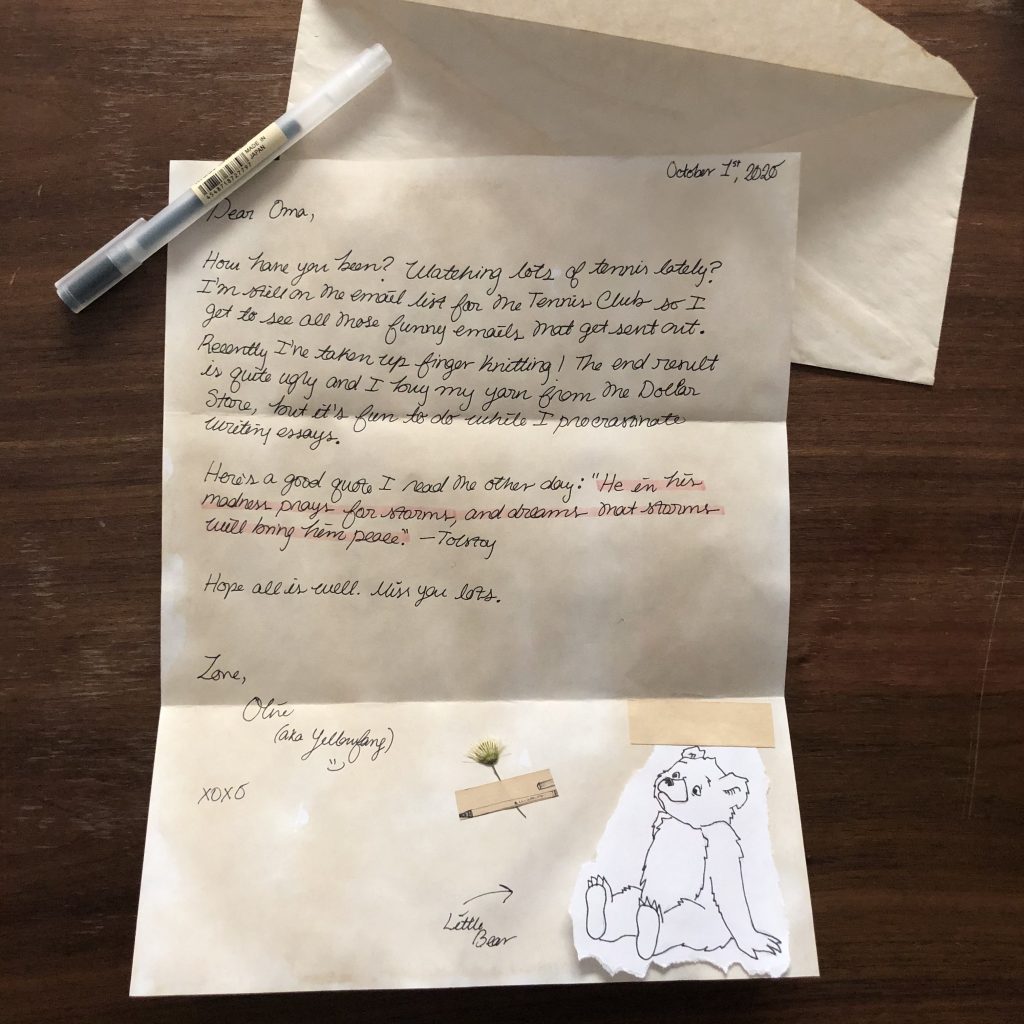 MADE IN
JAPAN
October 1st, 2020
Dear Oma,
How have you been? Watching lots of tennis lately?
I'm still on the email list for the Tennis Club so I
get to see all those funny emails that get sent out.
Recently I've taken up finger knitting! The end result
is quite ugly and I buy my yarn from the Dollar
Store, but it's fun to do while I procrastinate
writing essays.
Here's a good quote I read the other day: "He in his
madness prays for storms, and dreams that storms
will bring him peace." —Tolstoy
Hope all is well. Miss you lots.
Love,
Olive
(aka Yellowfang)
:)
XOXO
Little
Bear